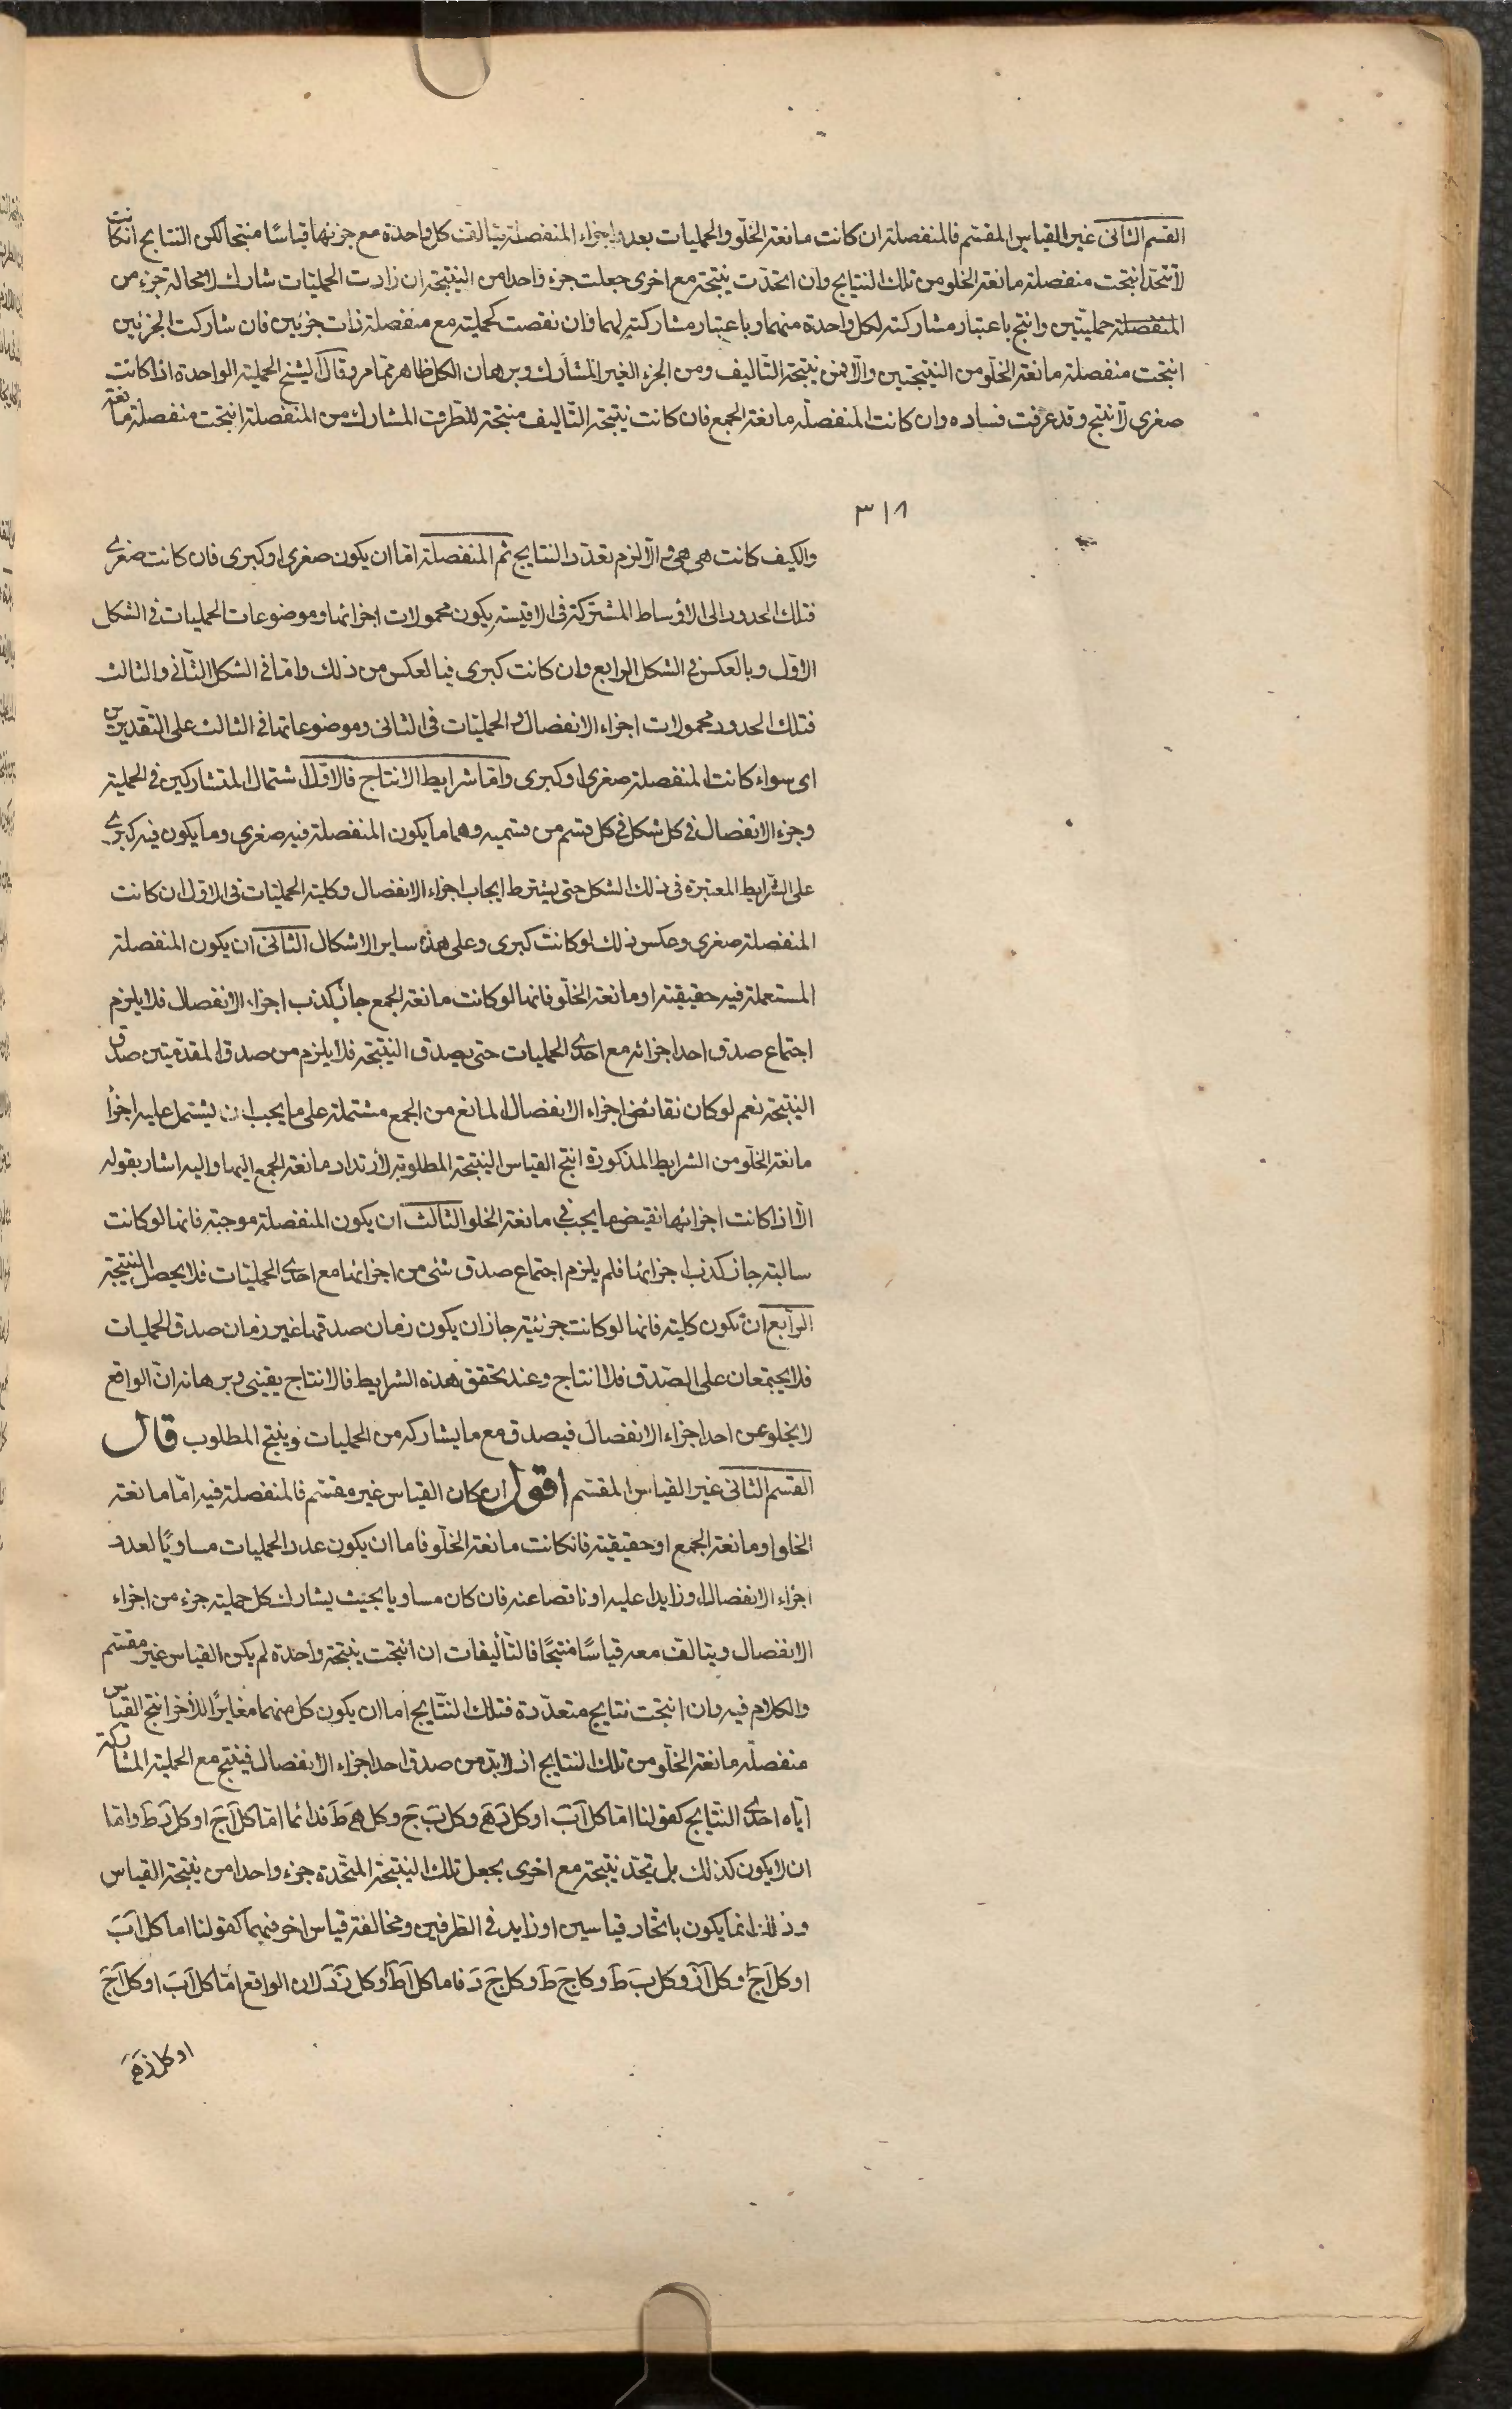 القسم الثانى غير القياس المقسم فالمنفصلة ان كانت مانعة الخلو والحمليات بعدد اجزاء المنفصلة يتالف كل واحدة مع جزئها قياسًا منتجا لكن النتايج ان كانت
لا تتحد انتجت منفصلة مانعة الخلو من تلك النتايج وان اتحدت نتيجة مع اخرى جعلت جزء واحدا من النتيجة ان زادت الحمليات شارك لا محالة جزء من
المنفصلة حمليتين وانتج باعتبار مشاركته لكل واحدة منهما وباعتبار مشاركته لهما فان نقصت كحملية مع منفصلة ذات جزئين فان شاركت الجزئين
انتجت منفصلة مانعة الخلو من النتيجتين والا فمن نتيجة التاليف ومن الجزء الغير المشارك وبرهان الكل ظاهر مما مر وقال الشيخ الحملية الواحدة اذا كانت
صغرى لا ينتج وقد عرفت فساده وان كانت المنفصلة مانعة الجمع فان كانت نتيجة التاليف منتجة للطرف المشارك من المنفصلة انتجت منفصلة مانعة
٣١٨
والكيف كانت هى هى والا لزم تعدد النتايج ثم المنفصلة اما ان يكون صغرى او كبرى فان كانت صغرى
فتلك الحدود اى الاوساط المشتركة فى الاقيسة يكون محمولات اجزائها وموضوعات الحمليات فى الشكل
الاول وبالعكس فى الشكل الرابع وان كانت كبرى فبالعكس من ذلك واما فى الشكل الثانى والثالث
فتلك الحدود محمولات اجزاء الانفصال والحمليات فى الثانى وموضوعاتها فى الثالث على التقديرين
اى سواء كانت المنفصلة صغرى او كبرى واما شرايط الانتاج فالاول اشتمال المتشاركين فى الحملية
وجزء الانفصال فى كل شكل فى كل قسم من قسميه وهما ما يكون المنفصلة فيه صغرى وما يكون فيه كبرى
على الشرايط المعتبرة فى ذلك الشكل حتى يشترط ايجاب اجزاء الانفصال وكلية الحمليات فى الاول ان كانت
المنفصلة صغرى وعكس ذلك لو كانت كبرى وعلى هذه ساير الاشكال الثانى ان يكون المنفصلة
المستعملة فيه حقيقية او مانعة الخلو فانها لو كانت مانعة الجمع جاز كذب اجزاء الانفصال فلا يلزم
اجتماع صدق احد اجزائه مع احدى الحمليات حتى يصدق النتيجة فلا يلزم من صدق المقدمتين صدق
النتيجة نعم لو كان نقائض اجزاء الانفصال المانع من الجمع مشتملة على ما يجب ان يشتمل عليه اجزأ
مانعة الخلو من الشرايط المذكورة انتج القياس النتيجة المطلوبة لارتداد مانعة الجمع اليها واليه اشار بقوله
الا اذا كانت اجزائها نقيض ما يجب فى مانعة الخلو الثالث ان يكون المنفصلة موجبة فانها لو كانت
سالبة جاز كذب اجزائها فلم يلزم اجتماع صدق شئ من اجزائها مع احدى الحمليات فلا يحصل النتيجة
الرابع ان تكون كلية فانها لو كانت جزئية جاز ان يكون زمان صدقها غير زمان صدق الحمليات
فلا يجتمعان على الصدق فلا انتاج وعند تحقق هذه الشرايط فالانتاج يقينى وبرهانه ان الواقع
لا يخلو عن احد اجزاء الانفصال فيصدق مع ما يشاركه من الحمليات وينتج المطلوب قال
القسم الثانى غير القياس المقسم اقول ان كان القياس غير مقسم فالمنفصلة فيه اما مانعة
الخلو او مانعة الجمع او حقيقية فانكانت مانعة الخلو فاما ان يكون عدد الحمليات مساويًا لعدد
اجزاء الانفصال او زايدا عليه او ناقصا عنه فان كان مساويا بحيث يشارك كل حملية جزء من اجزاء
الانفصال ويتالف معه قياسًا منتجًا فالتأليفات ان انتجت نتيجة واحدة لم يكن القياس غير مقسم
والكلام فيه وان انتجت نتايج متعددة فتلك النتايج اما ان يكون كل منهما مغايرًا للآخر انتج القياس
منفصلة مانعة الخلو من تلك النتايج اذ لا بد من صدق احد اجزاء الانفصال فينتج مع الحملية المشاركة
اياه احدى النتايج كقولنا اما كل اب او كل ده وكل ب ج وكل ه ط فدائما اما كل اج او كل د ط واما
ان لا يكون كذلك بل يتحد نتيجة مع اخرى بجعل تلك النتيجة المتحدة جزء واحدا من نتيجة القياس
وذلك انما يكون باتحاد قياسين او زايد فى الطرفين ومخالفة قياس اخر فيهما كقولنا اما كل اب
او كل اج او كل از وكل ب ط وكل ج ط وكل ج د فاما كل ا ط او كل ز د لان الواقع اما كل اب او كل اج
او كل زه